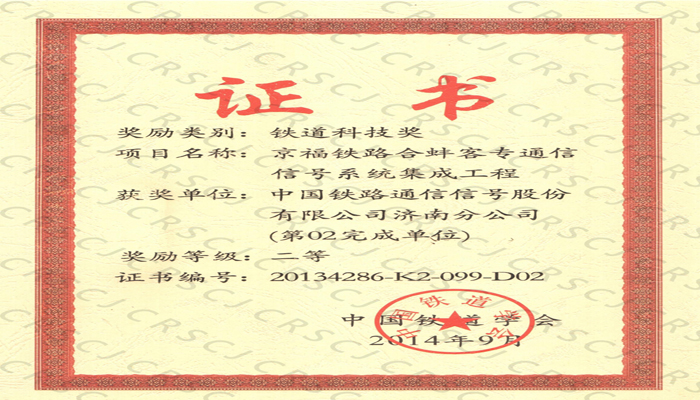 证书
奖励类别：铁道科技奖
项目名称：京福铁路合蚌客专通信
信号系统集成工程
获奖单位：中国铁路通信信号股份
有限公司济南分公司
(第02完成单位)
奖励等级：二等
证书编号：20134286-K2-099-D02
中国铁道学会
2014年9月
中国铁道学会
CRSCJ